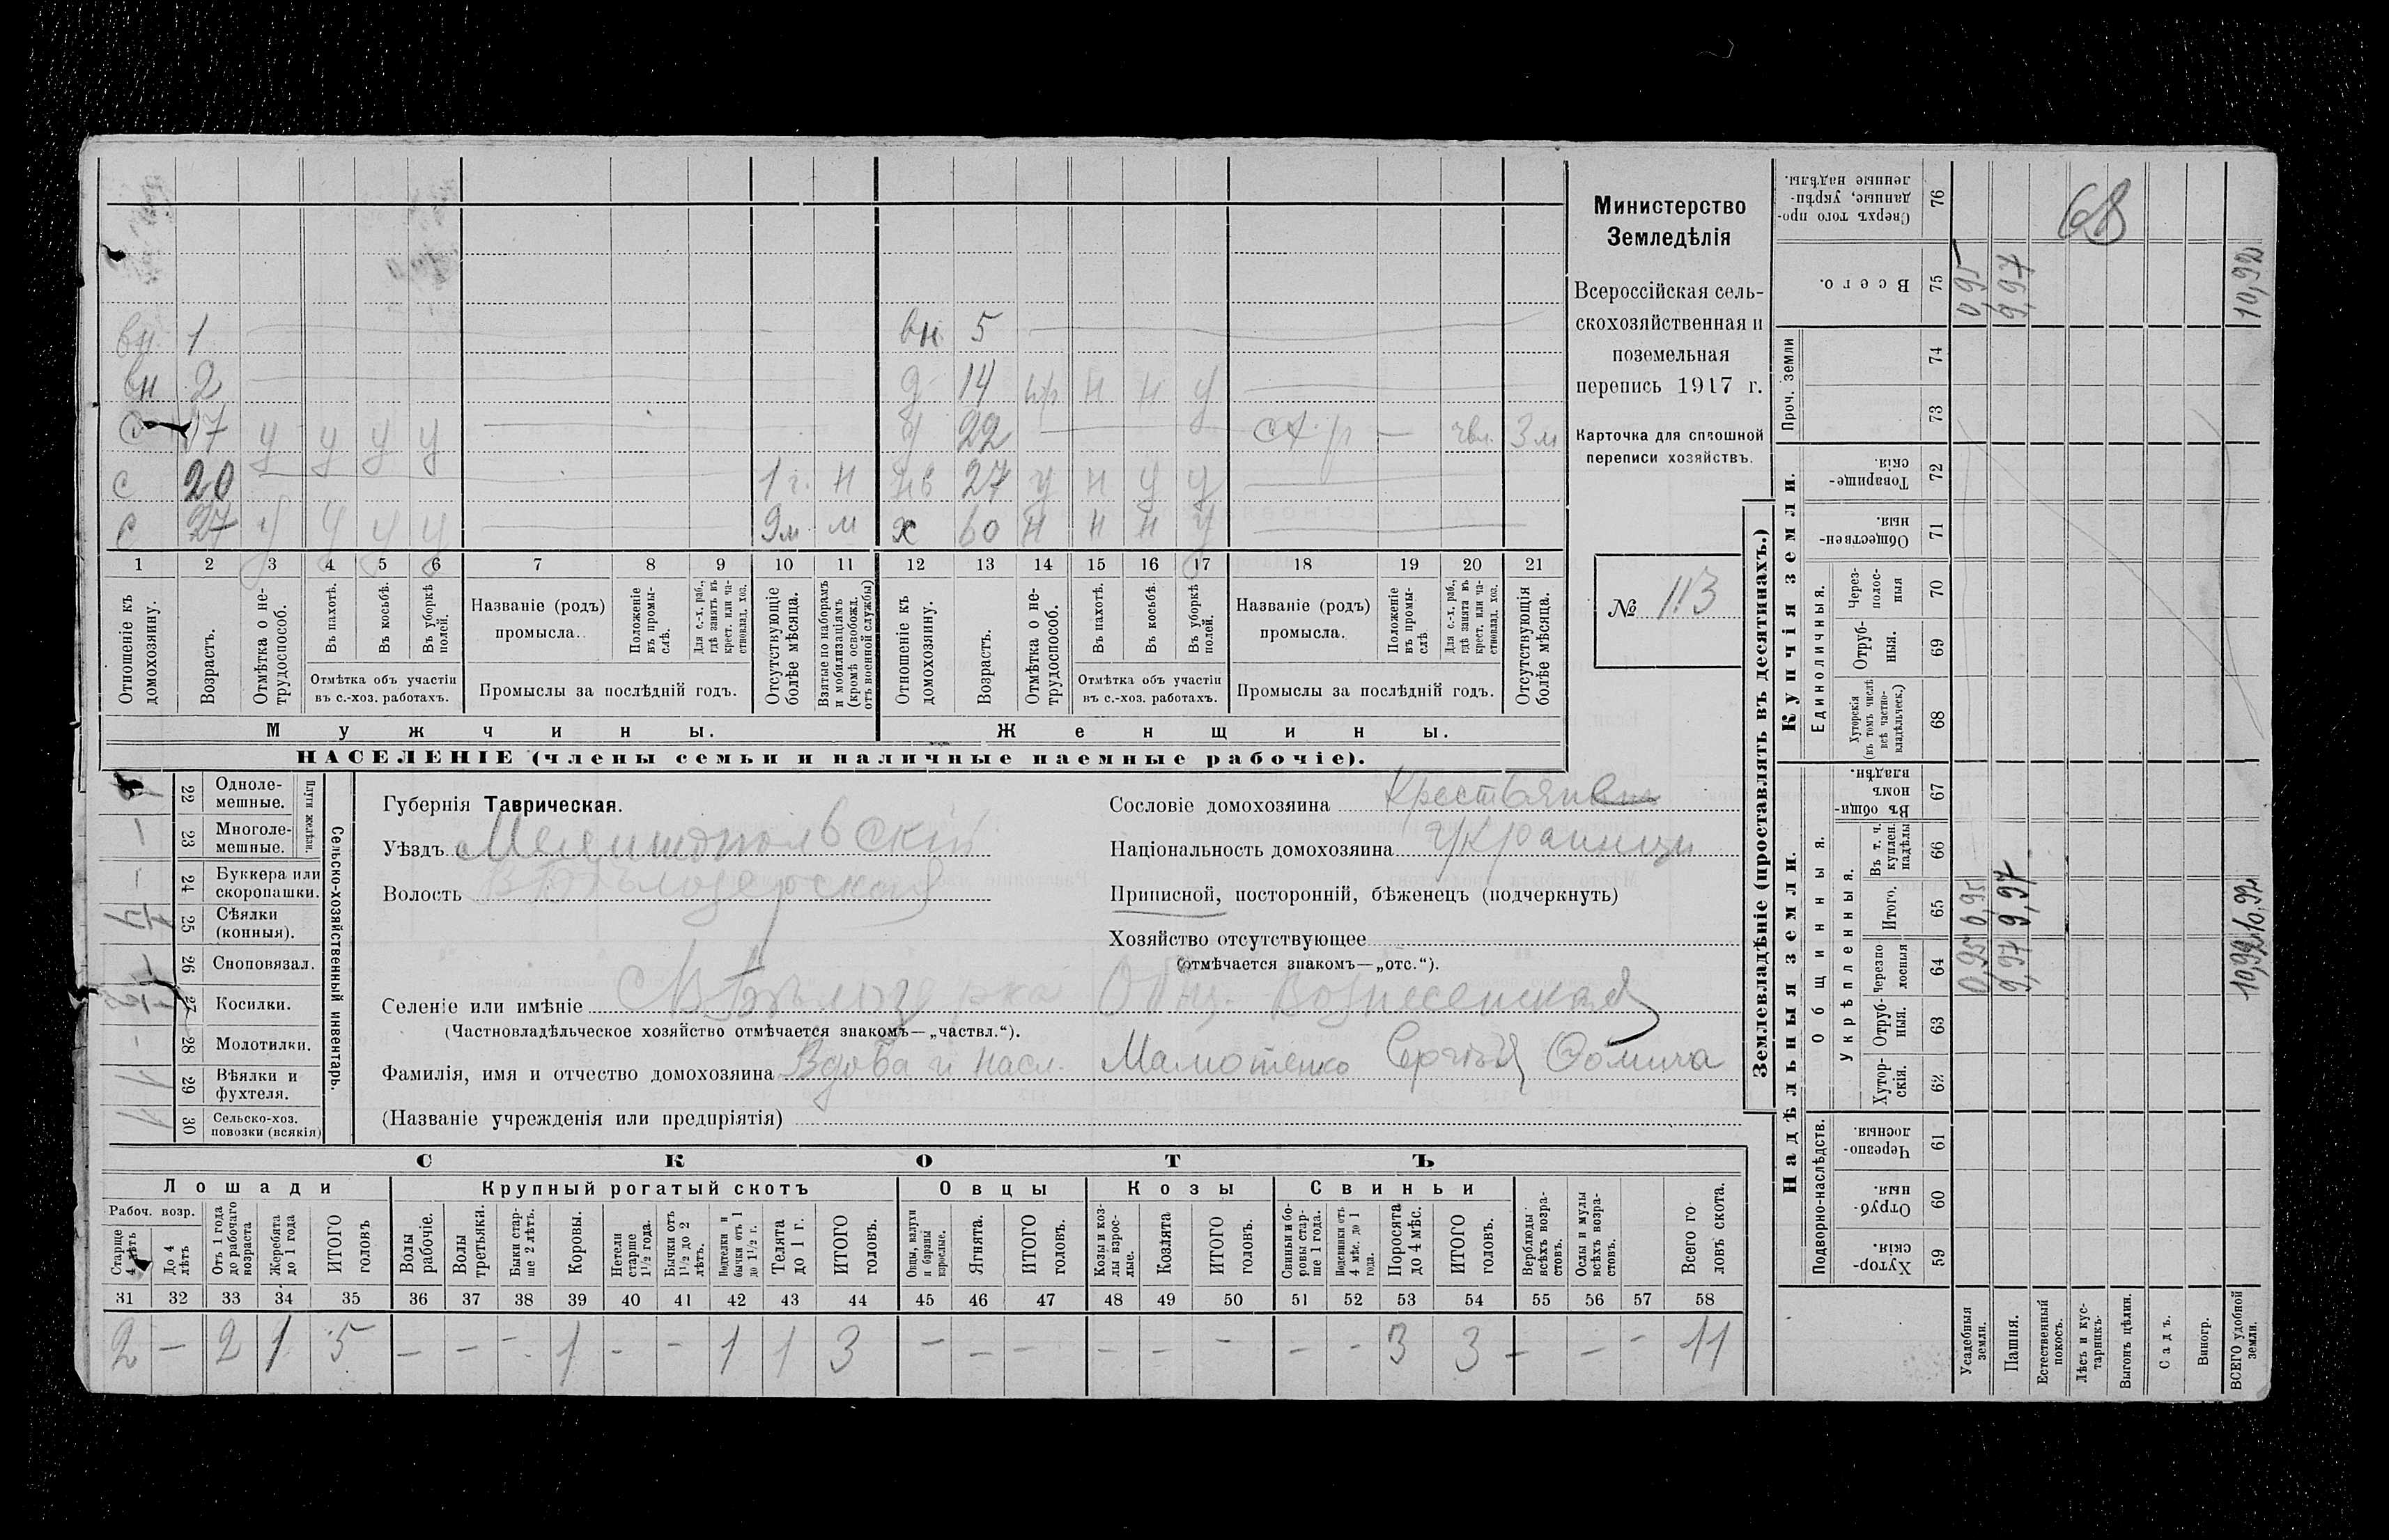 вн 1 вн 5
вн 2 д 14 пр н н у
с 17 у у у у 22 3 м
с 20 1 г. н 27 у н у у
с 27 у у у у 9 м м х 60 н н н у
1 2 3 4 5 6 7 8 9 10 11 12 13 14 15 16 17 18 19 20 21
Отношеніе къ домохозяину.
Возрастъ.
Отмѣтка о нетрудоспособ.
Въ пахотѣ.
Въ косьбѣ.
Въ уборкѣ полей.
Отмѣтка объ участіи въ с.-хоз. работахъ.
Названіе (родъ) промысла.
Положеніе въ промыслѣ.
Для с.-х. раб., гдѣ занятъ въ крест. или частновлад. хоз.
Промыслы за послѣдній годъ.
Отсутствующіе болѣе мѣсяца.
Взятые по наборамъ и мобилизаціямъ (кромѣ освобожд. отъ военной службы)
Отношеніе къ домохозяину.
Возрастъ.
Отмѣтка о нетрудоспособ.
Въ пахотѣ.
Въ косьбѣ.
Въ уборкѣ полей.
Отмѣтка объ участіи въ с.-хоз. работахъ.
Названіе (родъ) промысла.
Положеніе въ промыслѣ
Для с.-х. раб., гдѣ занята въ крест. или частновлад. хоз.
Промыслы за послѣдній годъ.
Отсутствующія болѣе мѣсяца.
Мужчины.
Женщины.
НАСЕЛЕНІЕ (члены семьи и наличные наемные рабочіе).
Министерство
Земледѣлія
Всероссійская сель-
скохозяйственная и
поземельная
перепись 1917 г.
Карточка для сплошной
переписи хозяйствъ.
№ 113
Сельско-хозяйственный инвентарь.
Плуги желѣзн.
22 Одноле-мешные.
23 Многоле-мешные.
24 Буккера или скоропашки.
25 Сѣялки (конныя).
26 Сноповязал.
27 Косилки.
28 Молотилки.
29 Вѣялки и фухтеля.
30 Сельско-хоз. повозки (всякія)
Губернія Таврическая.
Уѣздъ Мелитопольскій
Волость В Бѣлозерская
Селеніе или имѣніе С В Бѣлозерка Общ. Вознесенская
(Частновладѣльческое хозяйство отмѣчается знакомъ—„частвл.“).
Фамилія, имя и отчество домохозяина Вдова и насл. Мамотенко Сергѣя Фомича
(Названіе учрежденія или предпріятія)
Сословіе домохозяина
Національность домохозяина Украинцы
Приписной, посторонній, бѣженецъ (подчеркнуть)
Хозяйство отсутствующее
(отмѣчается знакомъ—„отс.“).
СКОТЪ
Лошади
Крупный рогатый скотъ
Овцы
Козы
Свиньи
Рабоч. возр.
Старше 4 лѣтъ
До 4 лѣтъ
Отъ 1 года до рабочаго возраста
Жеребята до 1 года
ИТОГО головъ
Волы рабочіе.
Волы третьяки.
Быки старше 2 лѣтъ.
Коровы.
Нетели старше 1½ года.
Бычки отъ 1½ до 2 лѣтъ.
Подтелки и бычки отъ 1 до 1½ г.
Телята до 1 г.
ИТОГО головъ.
Овцы, валухи и бараны взрослые.
Ягнята.
ИТОГО головъ.
Козы и козлы взрослые.
Козлята
ИТОГО головъ.
Свиньи и боровы старше 1 года.
Подсвинки отъ 4 мѣс. до 1 года.
Поросята до 4 мѣс.
ИТОГО головъ.
Верблюды всѣхъ возрастовъ.
Ослы и мулы всѣхъ возрастовъ.
Всего головъ скота.
31 32 33 34 35 36 37 38 39 40 41 42 43 44 45 46 47 48 49 50 51 52 53 54 55 56 57 58
2 — 2 1 5 — — — 1 - - 1 1 3 — — — — — — — - 3 3 — — - 11
Землевладѣніе (проставлять въ десятинахъ.)
Надѣльныя земли.
Купчія земли.
Проч. земли
Сверхъ того проданные, укрѣпленные надѣлы. 76
Всего. 75
74
73
Товарищескія. 72
Общественныя. 71
Единоличныя.
Черезполосныя 70
Отрубныя. 69
Хуторскія (въ томъ числѣ всѣ частновладѣльческ.) 68
Общинныя.
Въ общиномъ владѣн. 67
Укрѣпленныя.
Въ т. ч. куплен. надѣлы 66
Итого. 65
Черезполосныя 64
Отрубныя. 63
Хуторскія. 62
Подворно-наслѣдств.
Черезполосныя. 61
Отрубныя. 60
Хуторскія. 59
Усадебныя земли. 0,95 0,95 0,95
Пашня. 9,97 9,97 9,97
Естественный покосъ.
Лѣсъ и кустарникъ.
Выгонъ цѣлин.
Садъ.
Виногр.
ВСЕГО удобной земли. 10,92 10,92 10,92
68